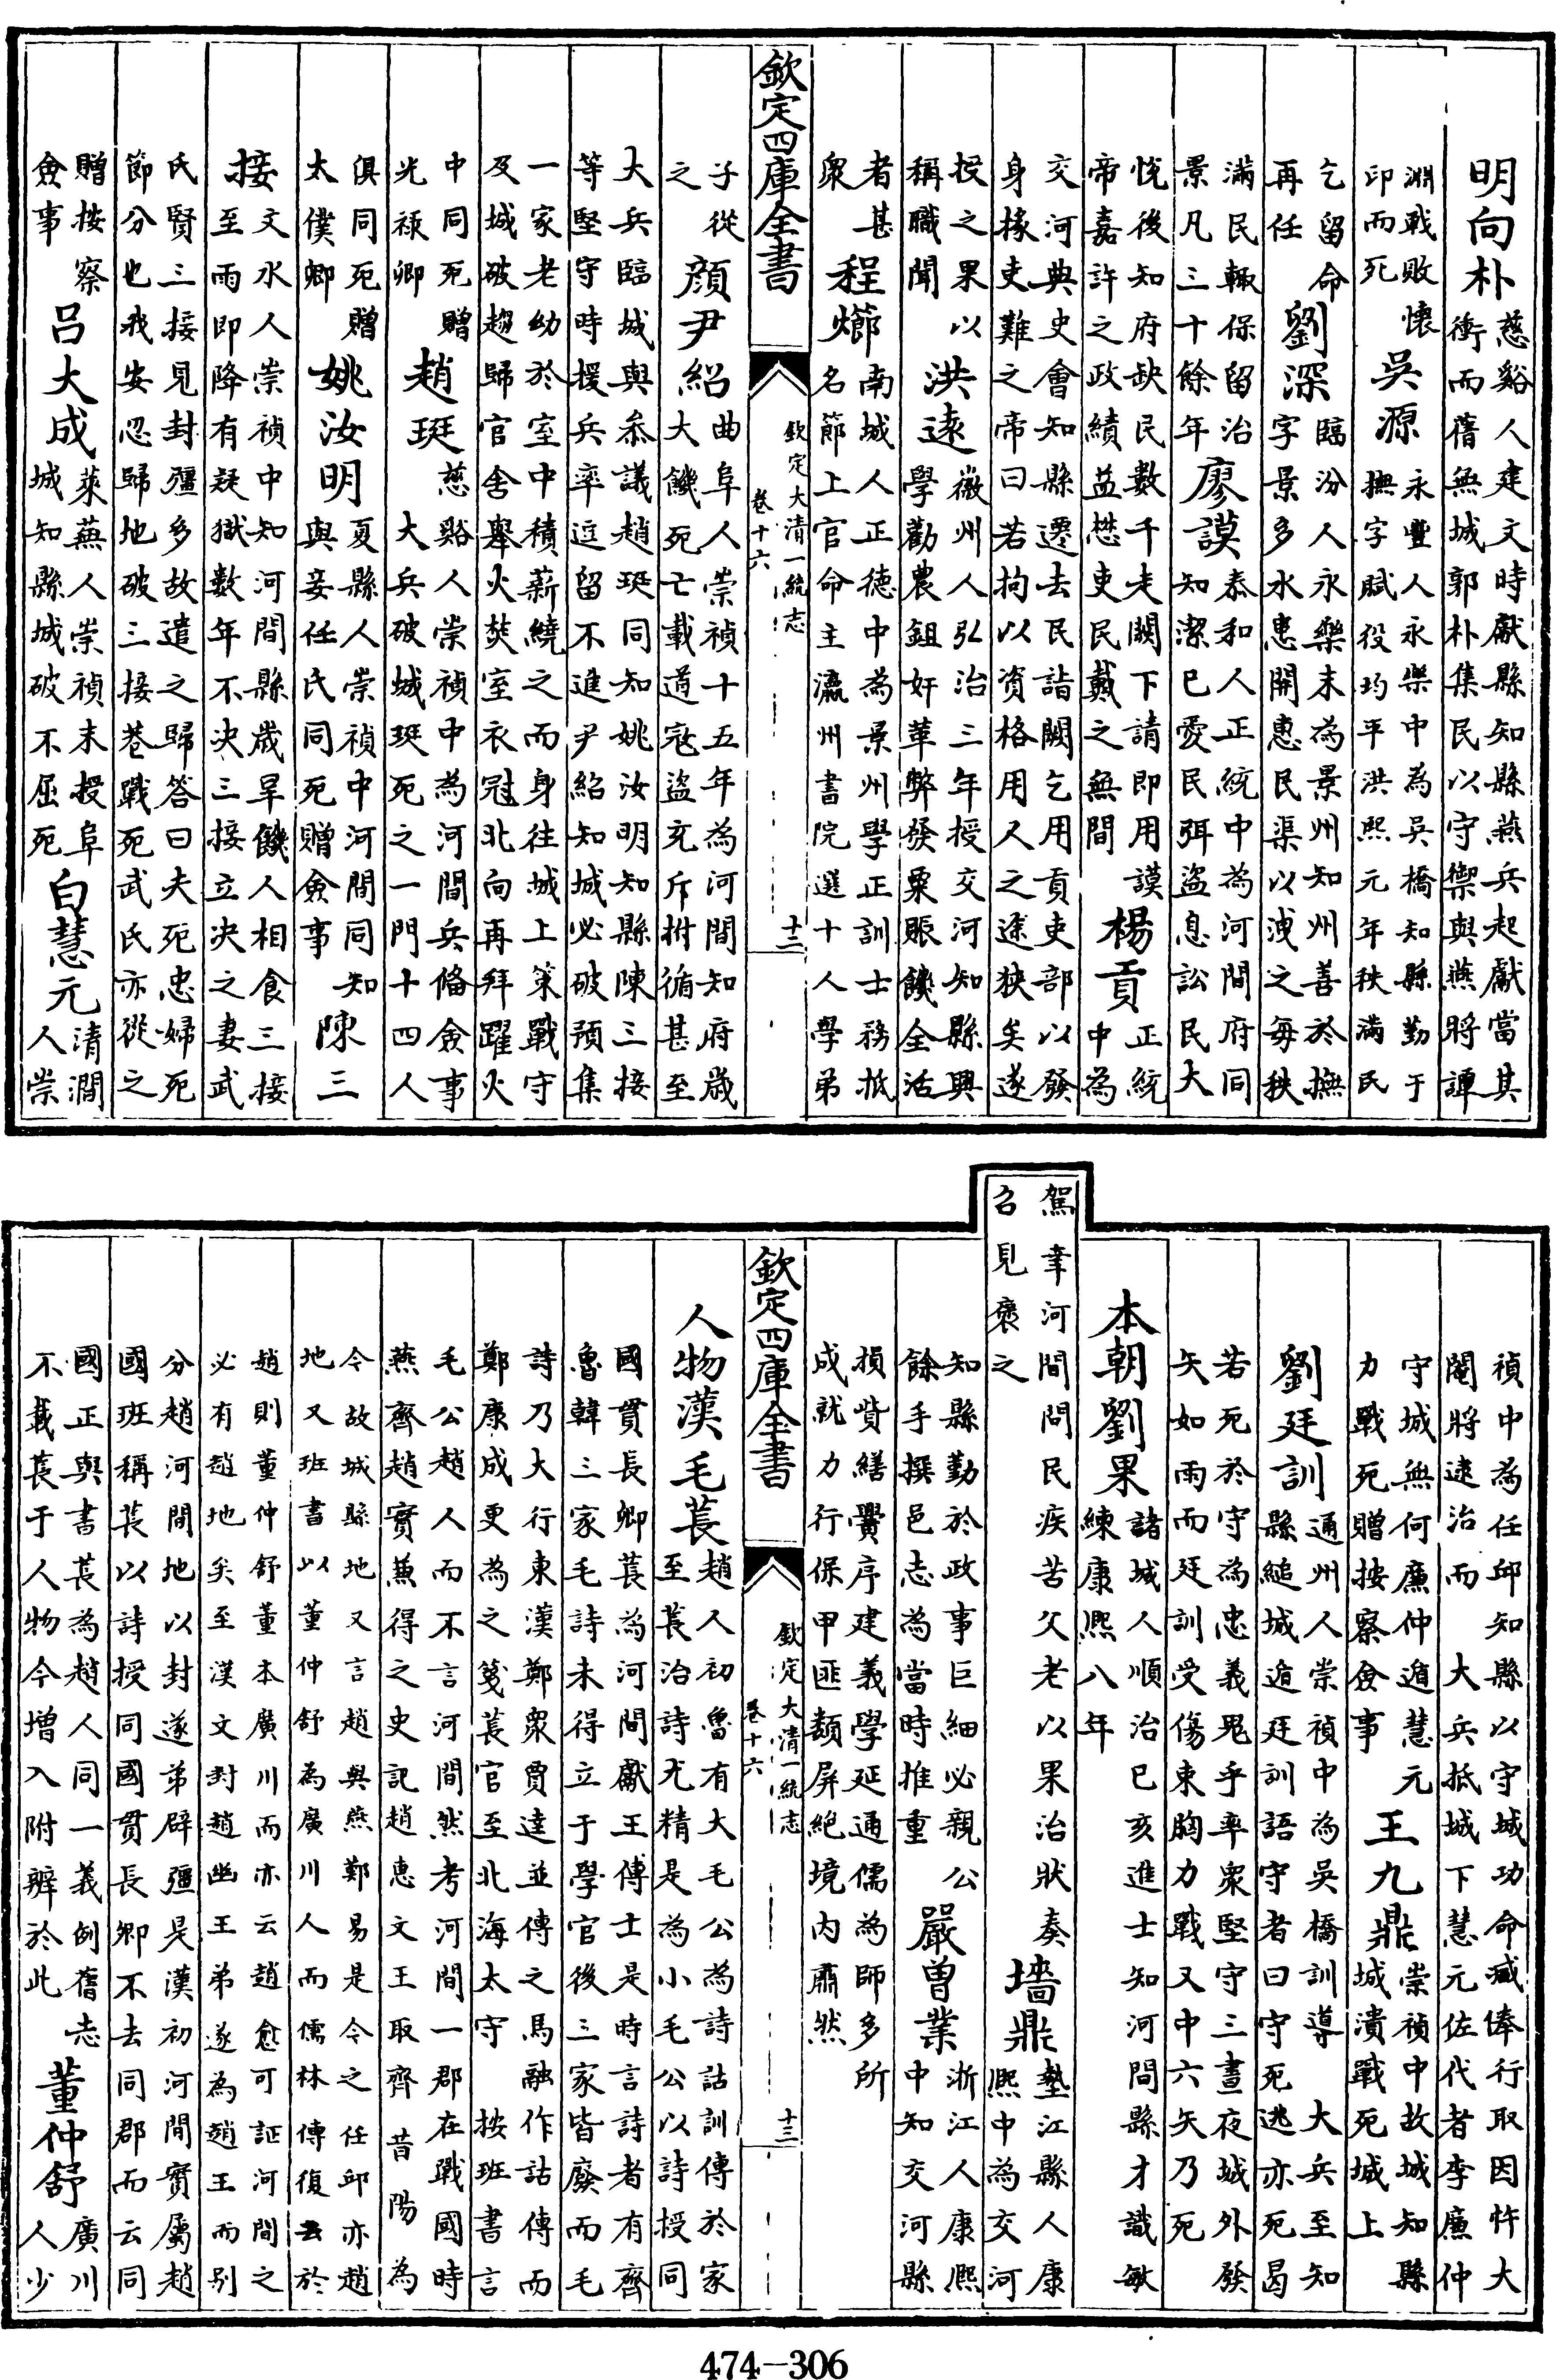 明向朴
慈谿人建文時獻縣知縣燕兵起獻當其
衝而舊無城郭朴集民以守禦與燕將譚
淵戰敗懷
印而死
吳源
永豐人永樂中為吳橋知縣勤于
撫字賦役均平洪熙元年秩滿民
乞留命
再任
劉深
臨汾人永樂末為景州知州善於撫
字景多水患開惠民渠以洩之每秩
滿民輙保留治
景凡三十餘年
廖謨
泰和人正統中為河間府同
知潔已愛民弭盜息訟民大
悅後知府缺民數千走闕下請即用謨
帝嘉許之政績益懋吏民戴之無間
楊貢
正統
中為
交河典史會知縣遷去民詣闕乞用貢吏部以發
身掾吏難之帝曰若拘以資格用人之途狹矣遂
授之果以
稱職聞
洪遠
徽州人弘治三年授交河知縣興
學勸農鉏奸革弊發粟賑饑全活
者甚
衆
程㸅
南城人正德中為景州學正訓士務抵
名節上官命主瀛州書院選十人學弟
欽定四庫全書
欽定大清一統志
卷十六
十三
子從
之
顔尹紹
曲阜人崇禎十五年為河間知府歲
大饑死亡載道寇盜充斥拊循甚至
大兵臨城與叅議趙珽同知姚汝明知縣陳三接
等堅守時援兵率逗留不進尹紹知城必破預集
一家老幼於室中積薪繞之而身往城上策戰守
及城破趨歸官舍舉火焚室衣冠北向再拜躍火
中同死贈
光禄卿
趙珽
慈谿人崇禎中為河間兵備僉事
大兵破城珽死之一門十四人
俱同死贈
太僕卿
姚汝明
夏縣人崇禎中河間同知
與妾任氏同死贈僉事
陳三
接
文水人崇禎中知河間縣歲旱饑人相食三接
至雨即降有疑獄數年不决三接立决之妻武
氏賢三接見封疆多故遣之歸答曰夫死忠婦死
節分也我安忍歸地破三接巷戰死武氏亦從之
贈按察
僉事
呂大成
萊蕪人崇禎末授阜
城知縣城破不屈死
白慧元
清澗
人崇
禎中為任邱知縣以守城功命減俸行取因忤大
閹將逮治而大兵抵城下慧元佐代者李廉仲
守城無何廉仲遁慧元
力戰死贈按察僉事
王九鼎
崇禎中故城知縣
城潰戰死城上
劉廷訓
通州人崇禎中為吳橋訓導大兵至知
縣縋城遁廷訓語守者曰守死逃亦死曷
若死於守為忠義鬼乎率衆堅守三晝夜城外發
矢如雨而廷訓受傷束胸力戰又中六矢乃死
本朝劉果
諸城人順治已亥進士知河間縣才識敏
練康熙八年
駕幸河間問民疾苦父老以果治狀奏
召見褒之
墻鼎
墊江縣人康
熙中為交河
知縣勤於政事巨細必親公
餘手撰邑志為當時推重
嚴曾業
浙江人康熙
中知交河縣
損貲繕黌序建義學延通儒為師多所
成就力行保甲匪纇屏絶境内肅然
欽定四庫全書
欽定大清一統志
卷十六
十三
人物漢毛萇
趙人初魯有大毛公為詩詁訓傳於家
至萇治詩尤精是為小毛公以詩授同
國貫長卿萇為河間獻王博士是時言詩者有齊
魯韓三家毛詩未得立于學官後三家皆廢而毛
詩乃大行東漢鄭衆賈逵並傳之馬融作詁傳而
鄭康成更為之箋萇官至北海太守按班書言
毛公趙人而不言河間然考河間一郡在戰國時
燕齊趙實兼得之史記趙惠文王取齊昔陽為
今故城縣地又言趙與燕鄭易是今之任邱亦趙
地又班書以董仲舒為廣川人而儒林傳復云於
趙則董仲舒董本廣川而亦云趙愈可証河間之
必有趙地矣至漢文封趙幽王弟遂為趙王而别
分趙河間地以封遂弟辟疆是漢初河間實屬趙
國班稱萇以詩授同國貫長卿不去同郡而云同
國正與書萇為趙人同一義例舊志
不載萇于人物今增入附辨於此
董仲舒
廣川
人少
474-306